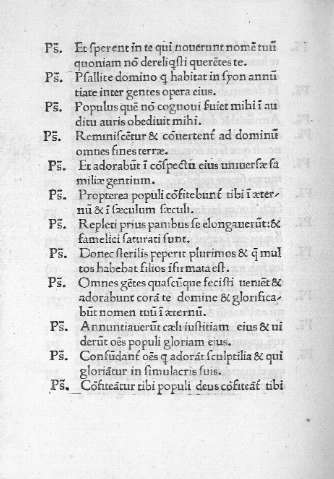 Ps̄. Et sperent in te qui nouerunt nomē tuū
quoniam nō dereliq̄sti querētes te.
Ps̄. Psallite domino q̄ habitat in syon annū
tiate inter gentes opera eius.
Ps̄. Populus quē nō cognoui ſuiet mihi ī au
ditu auris obediuit mihi.
Ps̄. Reminiſcētur & cōuertent̄ ad dominū
omnes fines terræ.
Ps̄. Et adorabūt ī cōſpectu eius uniuerſæ fa
miliæ gentium.
Ps̄. Propterea populi cōfitebunt̄ tibi ī æter-
nū & ī ſæculum ſæculi.
Ps̄. Repleti prius panibus ſe elongauerūt: &
famelici ſaturati ſunt.
Ps̄. Donec ſterilis peperit plurimos & q̄ mul
tos habebat filios īfirmata eſt.
Ps̄. Omnes gētes quaſcūque feciſti ueniēt &
adorabunt corā te domine & glorifica-
būt nomen tuū ī æternū.
Ps̄. Annuntiauerūt cæli iuſtitiam eius & ui
derūt oēs populi gloriam eius.
Ps̄. Confūdant̄ oēs q̄ adorāt ſculptilia & qui
gloriātur in ſimulacris ſuis.
Ps̄. Cōfiteātur tibi populi deus cōfiteāt̄ tibi